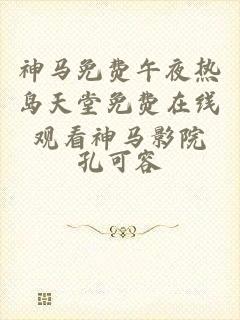 神马免费午夜热
岛天堂免费在线
观看神马影院
孔可容